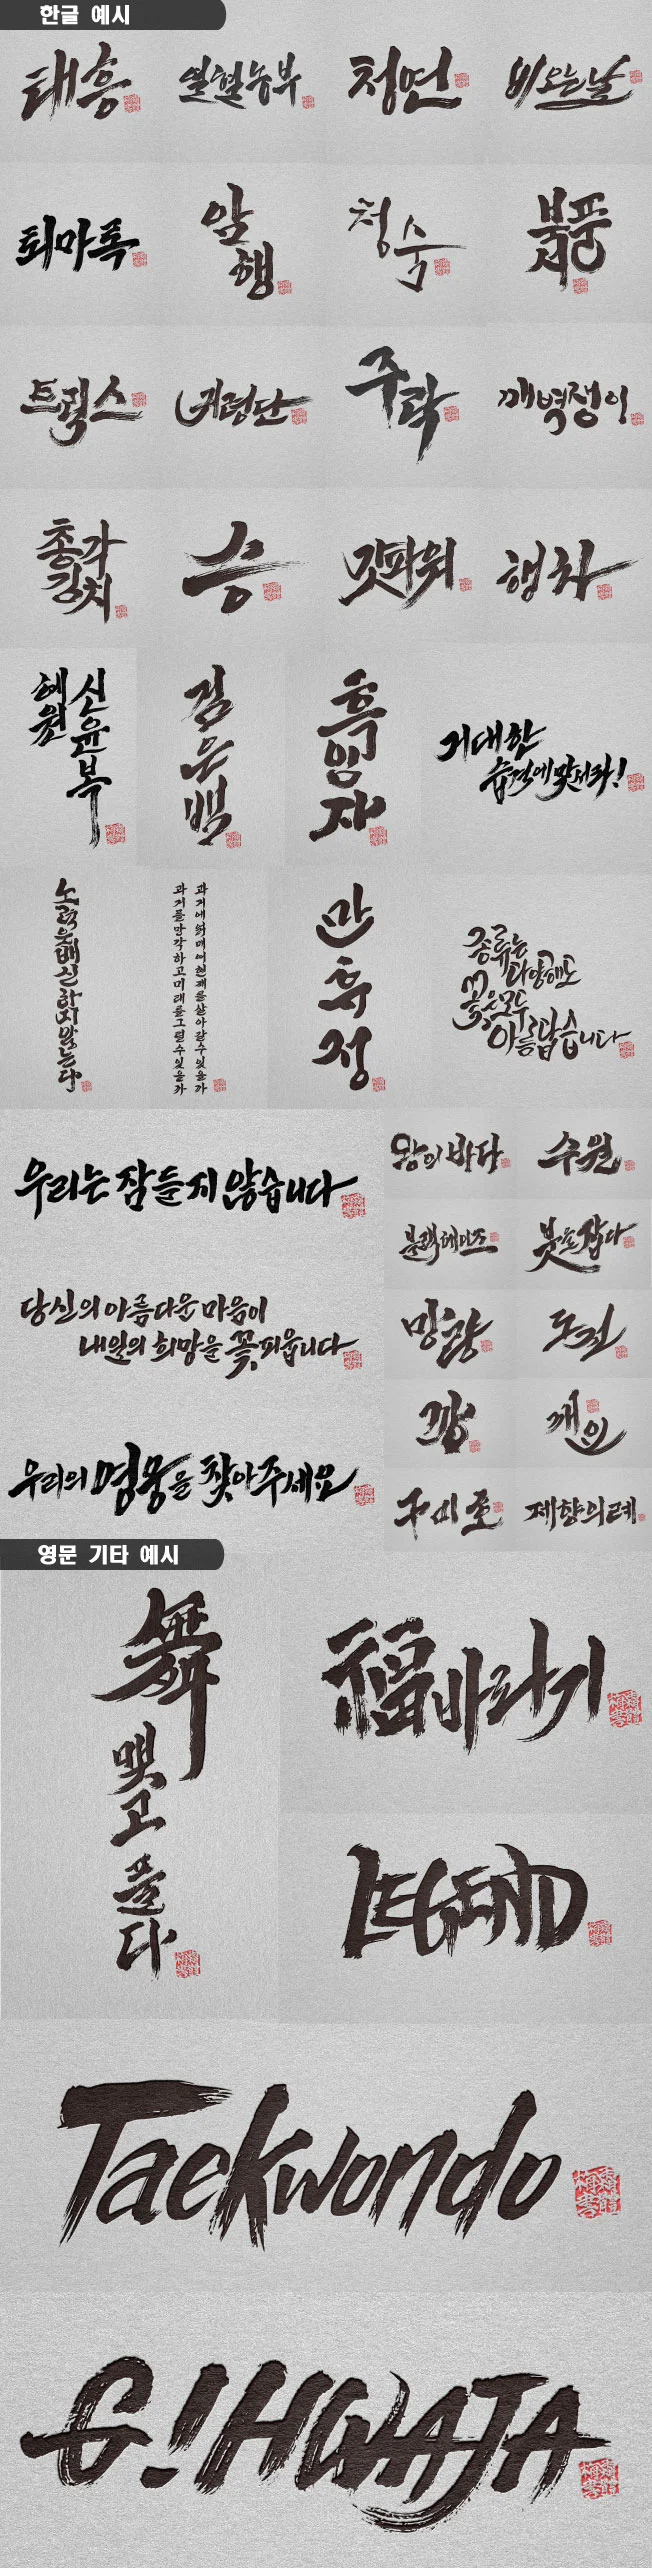 한글 예시
태흥
열혈농부
청연
비오는날
퇴마폭
암행
청숨
북풍
트릭스
귀령단
주락
깨벽쟁이
총각
김치
승
맛파워
행차
혜원
신윤복
김은백
흑임자
거대한
습격에 맞서라!
노력은 배신하지 않는다
과거에 얽매여 현재를 살아갈 수 있을까
과거를 망각하고 미래를 그릴 수 있을까
만휴정
종류는
다양해도
꽃은 모두
아름답습니다
우리는 잠들지 않습니다
왕의 바다
수원
블랙헤이즈
붓을 잡다
당신의 아름다운 마음이
내일의 희망을 꽃 피웁니다
망향
도전
깡
깨인
우리의 영웅을 찾아주세요
구미호
제향의례
영문 기타 예시
舞
맺고 풀다
福바라기
LEGEND
Taekwondo
G.!HWAJA